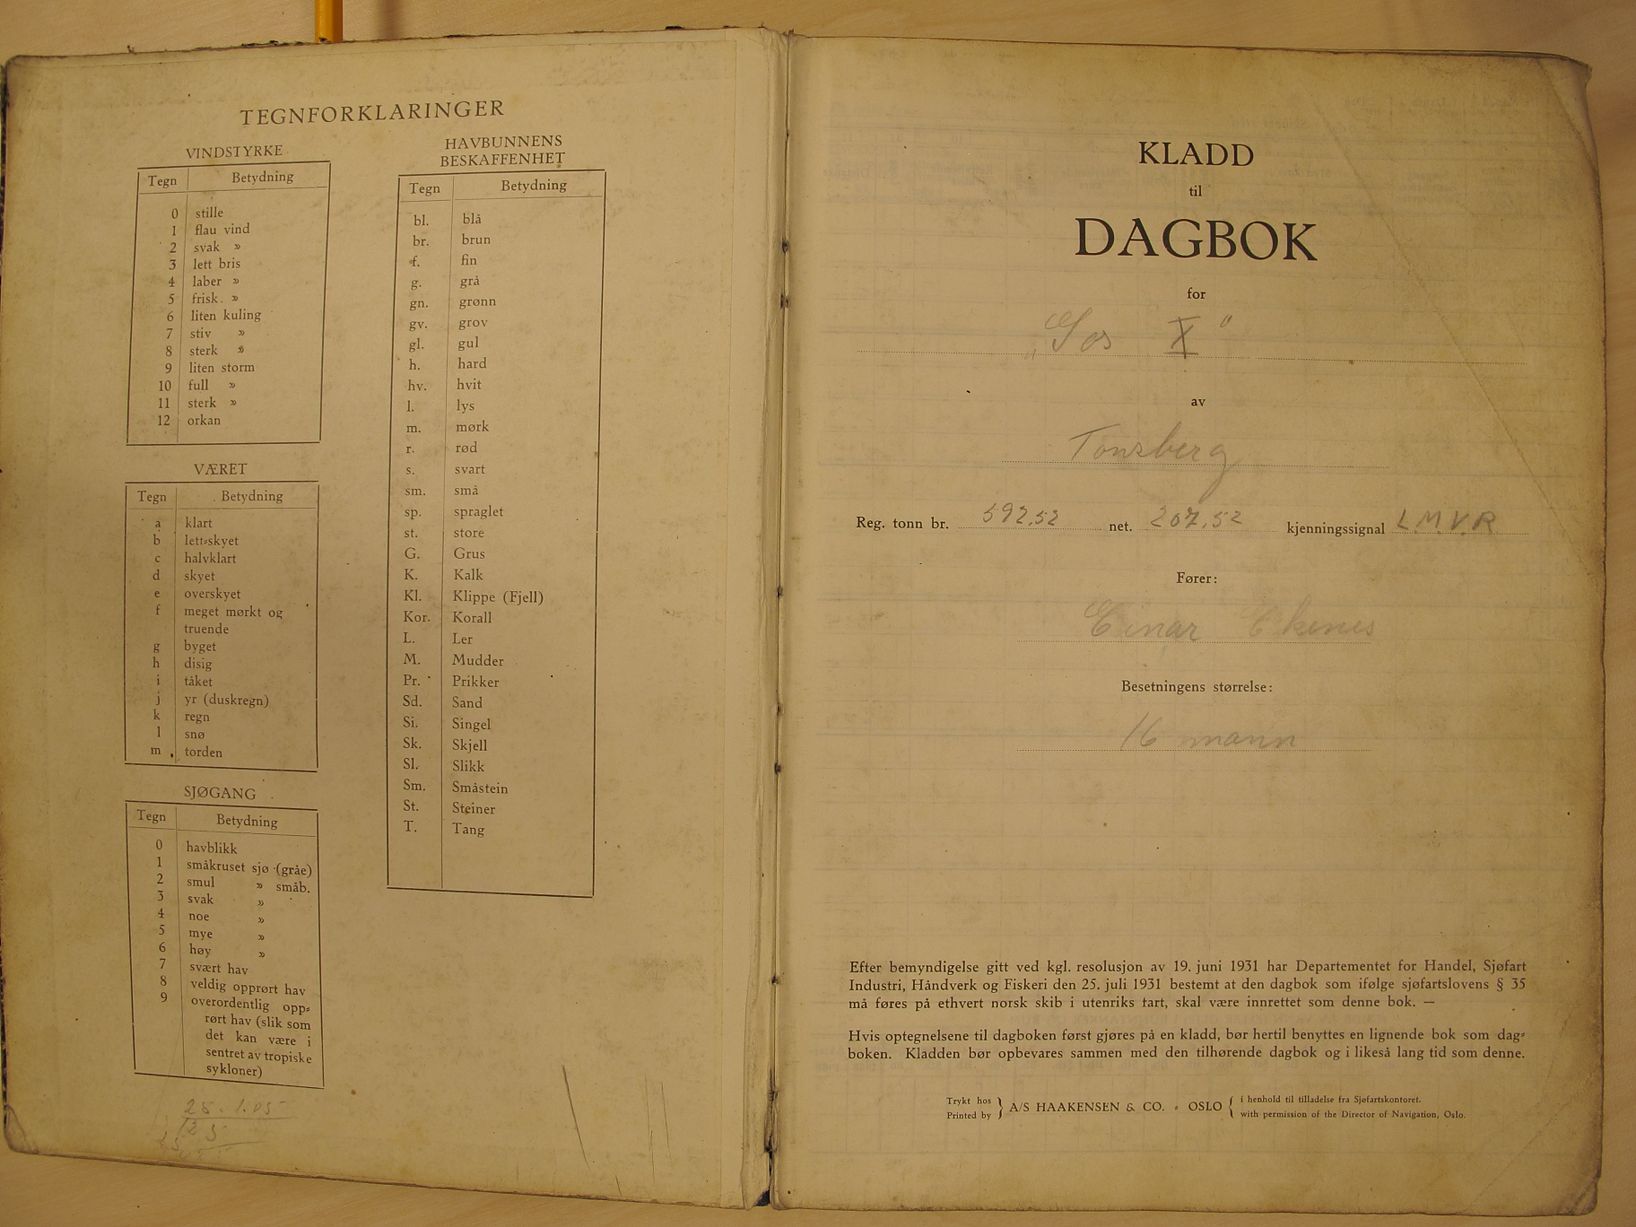 TEGNFORKLARINGER
VINDSTYRKE
Tegn Betydning
0 stille
1 flau vind
2 svak »
3 lett bris
4 laber »
5 frisk »
6 liten kuling
7 stiv »
8 sterk »
9 liten storm
10 full »
11 sterk »
12 orkan
VÆRET
Tegn Betydning
a klart
b lett-skyet
c halvklart
d skyet
e overskyet
f meget mørkt og
truende
g byget
h disig
i tåket
j yr (duskregn)
k regn
l snø
m torden
SJØGANG
Tegn Betydning
0 havblikk
1 småkruset sjø (gråe)
2 smul » småb.
3 svak »
4 noe »
5 mye »
6 høy »
7 svært hav
8 veldig opprørt hav
9 overordentlig opp-
rørt hav (slik som
det kan være i
sentret av tropiske
sykloner)
HAVBUNNENS
BESKAFFENHET
Tegn Betydning
bl. blå
br. brun
f. fin
g. grå
gn. grønn
gv. grov
gl. gul
h. hard
hv. hvit
l. lys
m. mørk
r. rød
s. svart
sm. små
sp. spraglet
st. store
G. Grus
K. Kalk
Kl. Klippe (Fjell)
Kor. Korall
L. Ler
M. Mudder
Pr. Prikker
Sd. Sand
Si. Singel
Sk. Skjell
Sl. Slikk
Sm. Småstein
St. Steiner
T. Tang
KLADD
til
DAGBOK
for
"Sos X"
av
Tønsberg
Reg. tonn br. 592,52 net. 207,52 kjenningssignal L.M.V.R
Fører:
Einar Ekenes
Besetningens størrelse:
16 mann
Efter bemyndigelse gitt ved kgl. resolusjon av 19. juni 1931 har Departementet for Handel, Sjøfart
Industri, Håndverk og Fiskeri den 25. juli 1931 bestemt at den dagbok som ifølge sjøfartslovens § 35
må føres på ethvert norsk skib i utenriks tart, skal være innrettet som denne bok. —
Hvis optegnelsene til dagboken først gjøres på en kladd, bør hertil benyttes en lignende bok som dag-
boken. Kladden bør opbevares sammen med den tilhørende dagbok og i likeså lang tid som denne.
Trykt hos } A/S HAAKENSEN & CO. • OSLO { i henhold til tilladelse fra Sjøfartskontoret.
Printed by } { with permission of the Director of Navigation, Oslo.